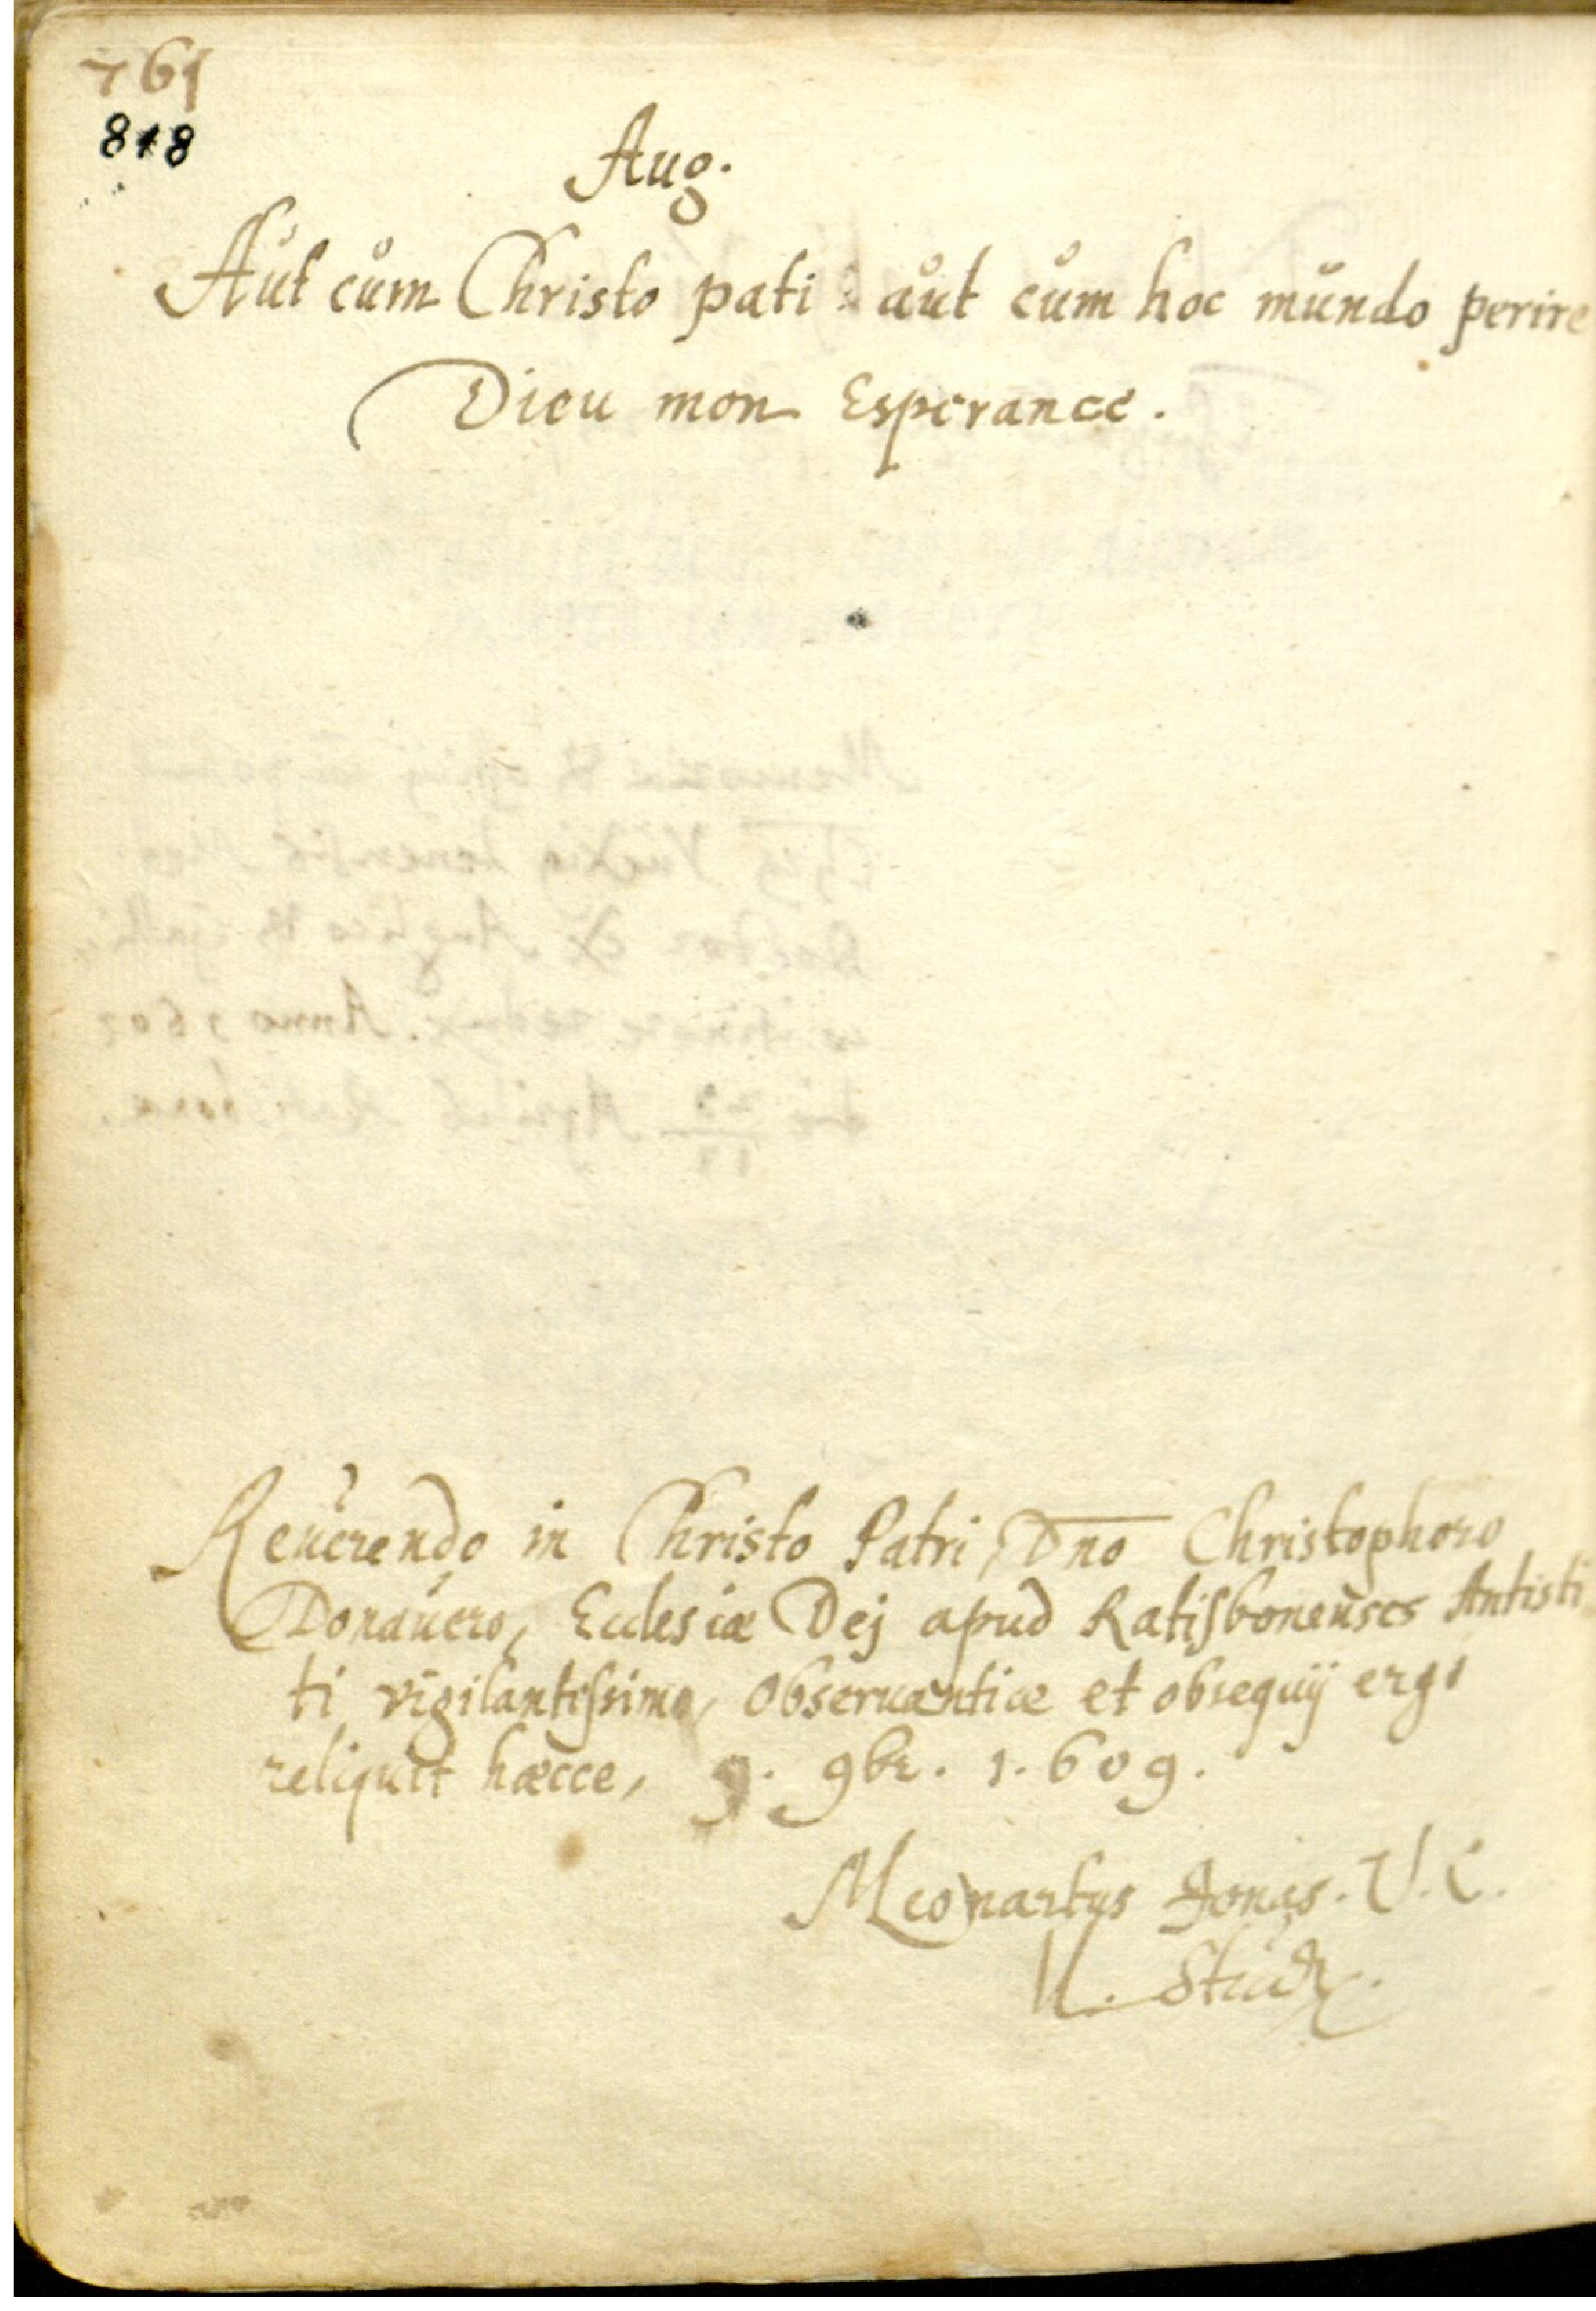 761
818
Aug.
Aut cum Christo pati: aut cum hoc mundo perire
Dieu mon Esperance.
Reuerendo in Christo Patri, Dno Christophoro
Donauero, Ecclesiæ Dej apud Ratisbonenses Antisti
ti vigilantissimo, observantiæ et obsequij ergo
reliquit hæcce, 9. 9br. 1.609.
Leonartus Jonas. V. C.
Stud.